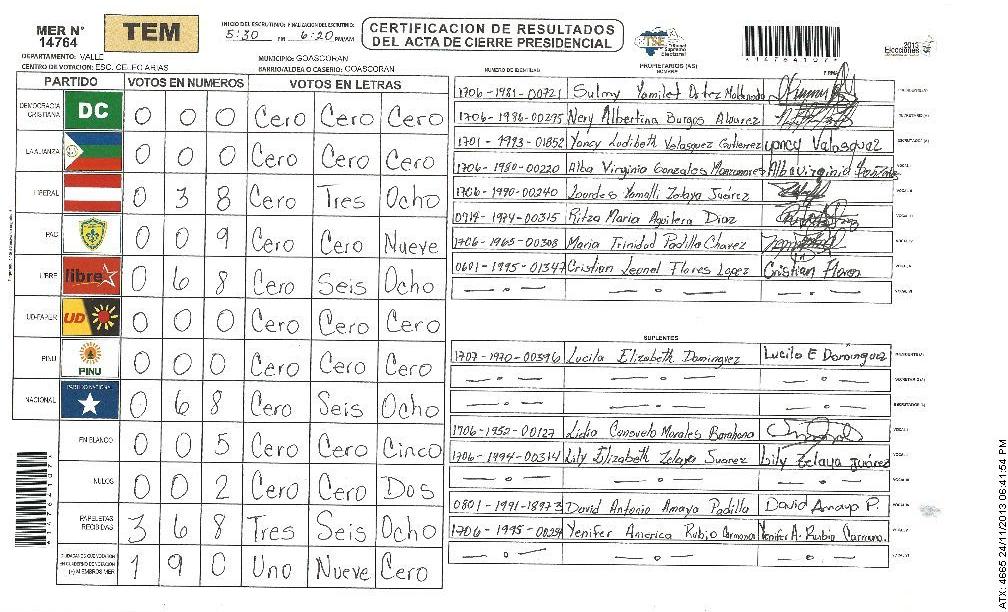 MER N° 14764
TEM
INICIO DEL ESCRUTINIO: FINALIZACION DEL ESCRUTINIO:
5:30 PM 6:20 PM/AM
CERTIFICACION DE RESULTADOS
DEL ACTA DE CIERRE PRESIDENCIAL
TSE Tribunal Supremo Electoral
2013 Elecciones
DEPARTAMENTO: VALLE
MUNICIPIO: GOASCORAN
CENTRO DE VOTACION: ESC. CELEO ARIAS
BARRIO/ALDEA O CASERIO: GOASCORAN
PARTIDO VOTOS EN NUMEROS VOTOS EN LETRAS
DEMOCRACIA CRISTIANA DC 0 0 0 Cero Cero Cero
LA ALIANZA 0 0 0 Cero Cero Cero
LIBERAL 0 3 8 Cero Tres Ocho
PAC 0 0 9 Cero Cero Nueve
LIBRE libre 0 6 8 Cero Seis Ocho
UD-FAPER UD 0 0 0 Cero Cero Cero
PINU PINU 0 0 0 Cero Cero Cero
NACIONAL PARTIDO NACIONAL 0 6 8 Cero Seis Ocho
EN BLANCO 0 0 5 Cero Cero Cinco
NULOS 0 0 2 Cero Cero Dos
PAPELETAS RECIBIDAS 3 6 8 Tres Seis Ocho
CIUDADANOS QUE VOTARON EN CUADERNO DE VOTACION (+) MIEMBROS MER 1 9 0 Uno Nueve Cero
NUMERO DE IDENTIDAD PROPIETARIOS (AS) NOMBRE FIRMA
1706-1981-00721 Sulmy Yamilet Ortez Maldonado
1706-1986-00295 Nery Albertina Burgos Alvarez
1701-1993-01852 Yoncy Ludibeth Velasquez Gutierrez yoncy Velasquez
1706-1980-00220 Alba Virginia Gonzales Manzanares Alba virginia Gonzales
1706-1990-00240 Lourdes Yamalli Zelaya Juárez
0719-1974-00315 Ritza Maria Aguilera Diaz
1706-1965-00308 Maria Trinidad Padilla Chavez
0601-1995-01347 Cristian Leonel Flores Lopez Cristian Flores
SUPLENTES
1707-1970-00396 Lucila Elizabeth Dominguez Lucila E Dominguez
1706-1952-00127 Lidia Consuelo Morales Barahona
1706-1994-00314 Lily Elizabeth Zelaya Suarez Lily Zelaya Juárez
0801-1991-18973 David Antonio Amaya Padilla David Amaya P.
Yenifer America Rubio Carmona Yenifer A. Rubio Carmona.
ATX: 4665 24/11/2013 06:41:54 PM